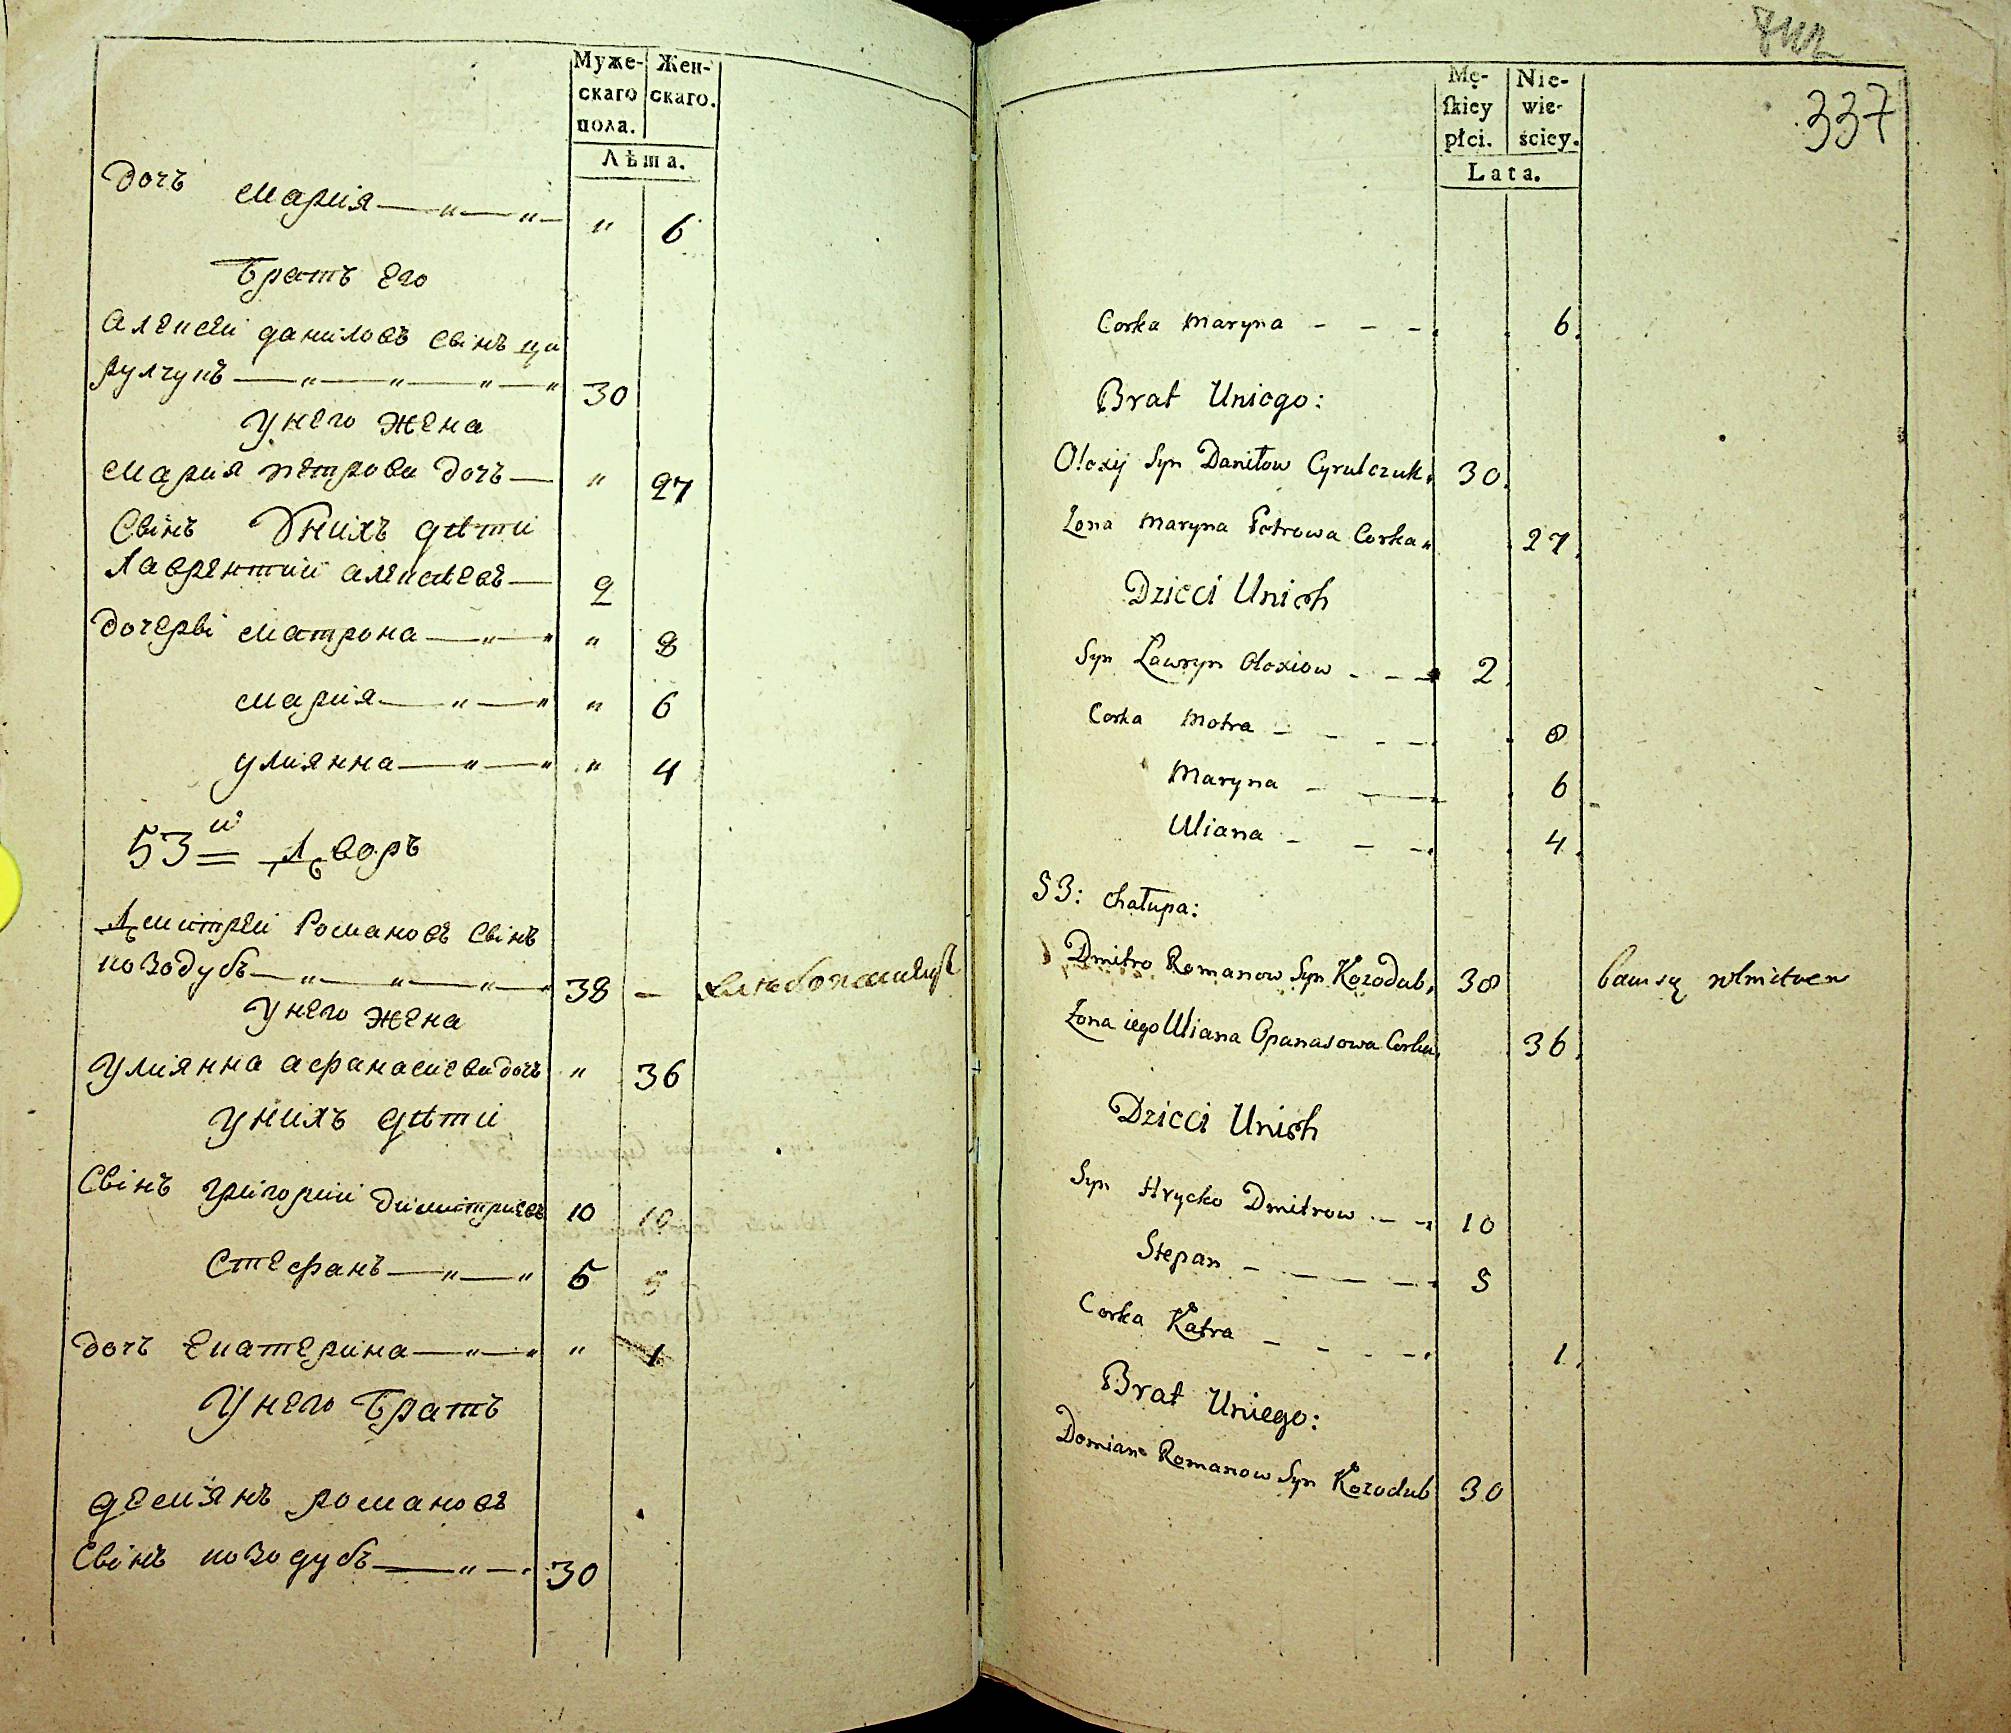 Муже-
скаго
пола.
Жен-
скаго.
Лѣта.
дочь
Мария — " — " — " 6
Братъ его
Алексей данилов свiнъ ци
рулчукъ — " — " — " — " 30
У него жена
Мария петрова дочь — " 27
Свiнъ У них дѣти
Лаврентий алексѣевъ — 2
дочерві Матрона — " — " " 8
Мария — " — " " 6
Улиянна — " — " " 4
53й Дворъ
Дмитрей Романовъ Свiнъ
козодубъ — " — " — " — " 38 —
У него жена
Улиянна афанасиева дочь " 36
У нихъ дѣти
Свiнъ Григорий Димитриевъ 10 10
Стефанъ — " — " 5 5
дочь Екатерина — " — " " 1
У него Братъ
демянъ романовъ
Свiнъ козодубъ — " — 30
337
Mę-
ſkiey
płci.
Nie-
wie-
ściey.
Lata.
Corka Maryna - - - 6.
Brat Uniego:
Olexij Syn Daniłow Cyrulczuk. 30.
Żona Maryna Petrowa Corka 27.
Dzieci Unich
Syn Ławryn Olexiow - - - 2.
Corka Motra - - - - 8
Maryna - - - 6
Uliana - - - 4.
53: Chałupa:
Dmitro Romanow Syn Kozodub, 38
Żona iego Uliana Opanasowa Corka. 36.
Dzieci Unich
Syn Hrycko Dmitrow - - 10
Stepan - - - - - 5
Corka Katra - - - - 1.
Brat Uniego:
Domian Romanow Syn Kozodub 30